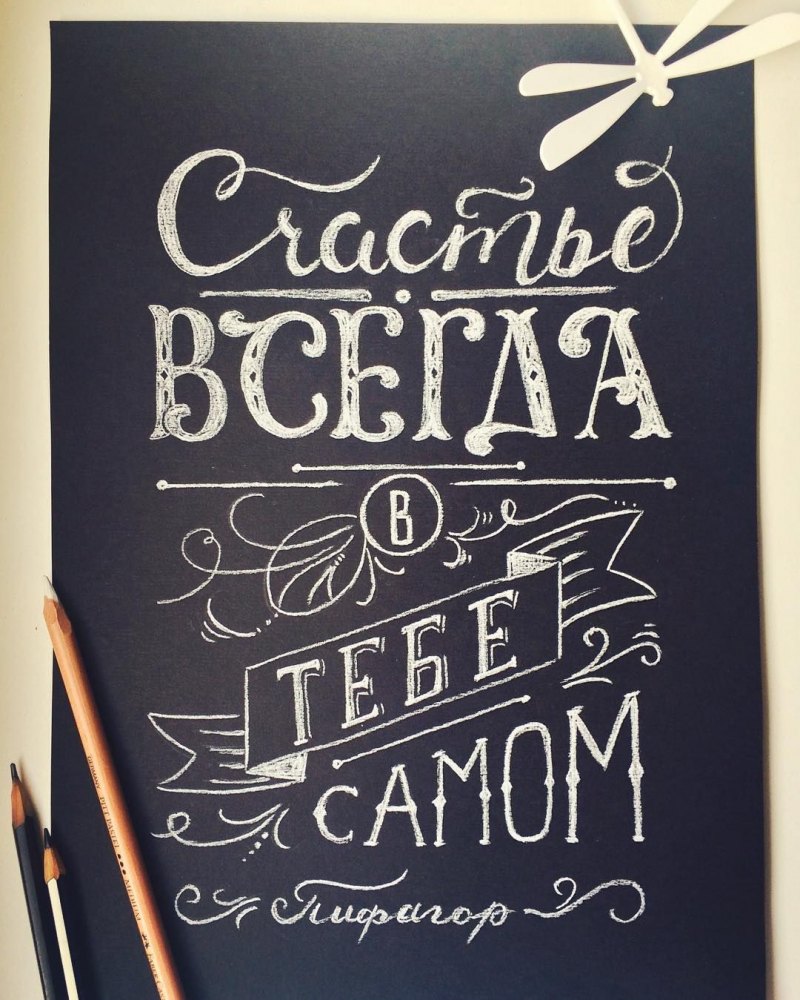 Счастье
ВСЕГДА
В
ТЕБЕ
САМОМ
Пифагор